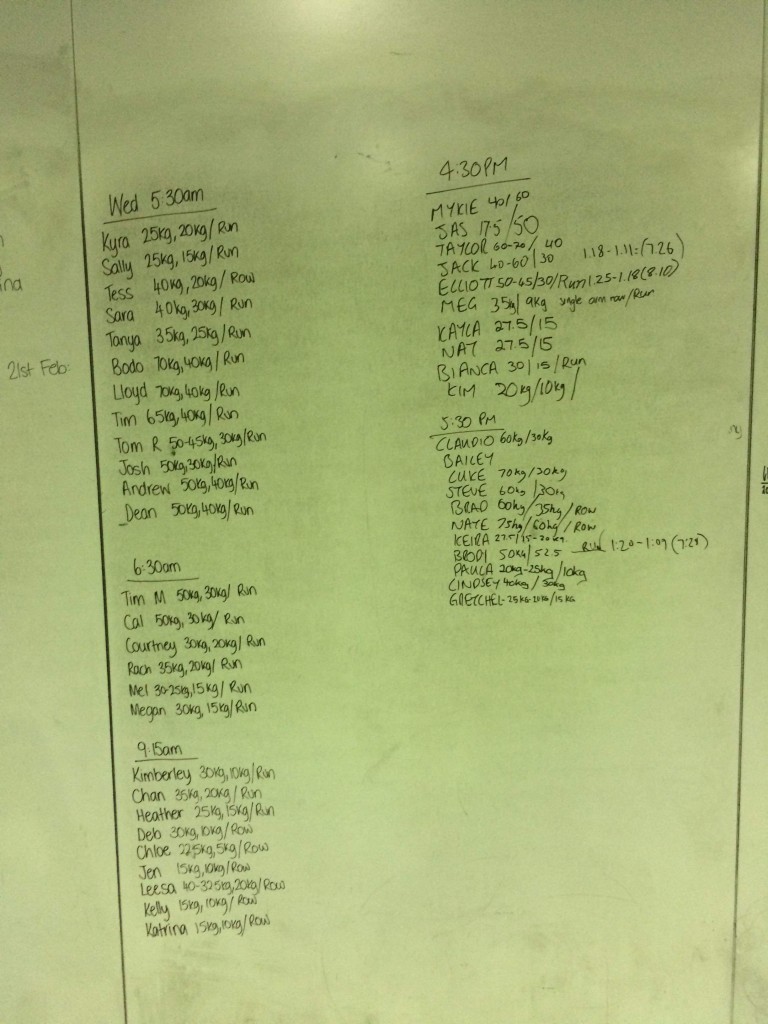 21st Feb:
Wed 5:30am
Kyra 25kg, 20kg/Run
Sally 25kg, 15kg/Run
Tess 40kg, 20kg/Row
Sara 40kg, 30kg/Run
Tanya 35kg, 25kg/Run
Bodo 70kg, 40kg/Run
Lloyd 70kg, 40kg/Run
Tim 65kg, 40kg/Run
Tom R 50-45kg, 30kg/Run
Josh 50kg, 30kg/Run
Andrew 50kg, 40kg/Run
Dean 50kg, 40kg/Run
6:30am
Tim M 50kg, 30kg/Run
Cal 50kg, 30kg/Run
Courtney 30kg, 20kg/Run
Rach 35kg, 20kg/Run
Mel 30-25kg, 15kg/Run
Megan 30kg, 15kg/Run
9:15am
Kimberley 30kg, 10kg/Run
Chan 35kg, 20kg/Run
Heather 25kg, 15kg/Run
Deb 30kg, 10kg/Row
Chloe 22.5kg, 5kg/Row
Jen 15kg, 10kg/Row
Leesa 40-32.5kg, 20kg/Row
Kelly 15kg, 10kg/Row
Katrina 15kg, 10kg/Row
4:30PM
MYKIE 40/60
JAS 17.5/50
TAYLOR 60-70/40
JACK 40-60/30 1.18-1.11=(7.26)
ELLIOTT 50-45/30/Run 1.25-1.18(8.10)
MEG 35kg/9kg single arm row/Run
KAYLA 27.5/15
NAT 27.5/15
BIANCA 30/15/Run
KIM 20kg/10kg/
5:30 PM
CLAUDIO 60kg/30kg
BAILEY
LUKE 70kg/30kg
STEVE 60kg/30kg
BRAD 60kg/35kg/ROW
NATE 75kg/60kg/ROW
KEIRA 27.5/15-20kg
BRODI 50kg/52.5 Run 1:20-1:09 (7:28)
PAULA 20kg-25kg/10kg
LINDSEY 40kg/30kg
GRETCHEL-25KG-20KG/15KG